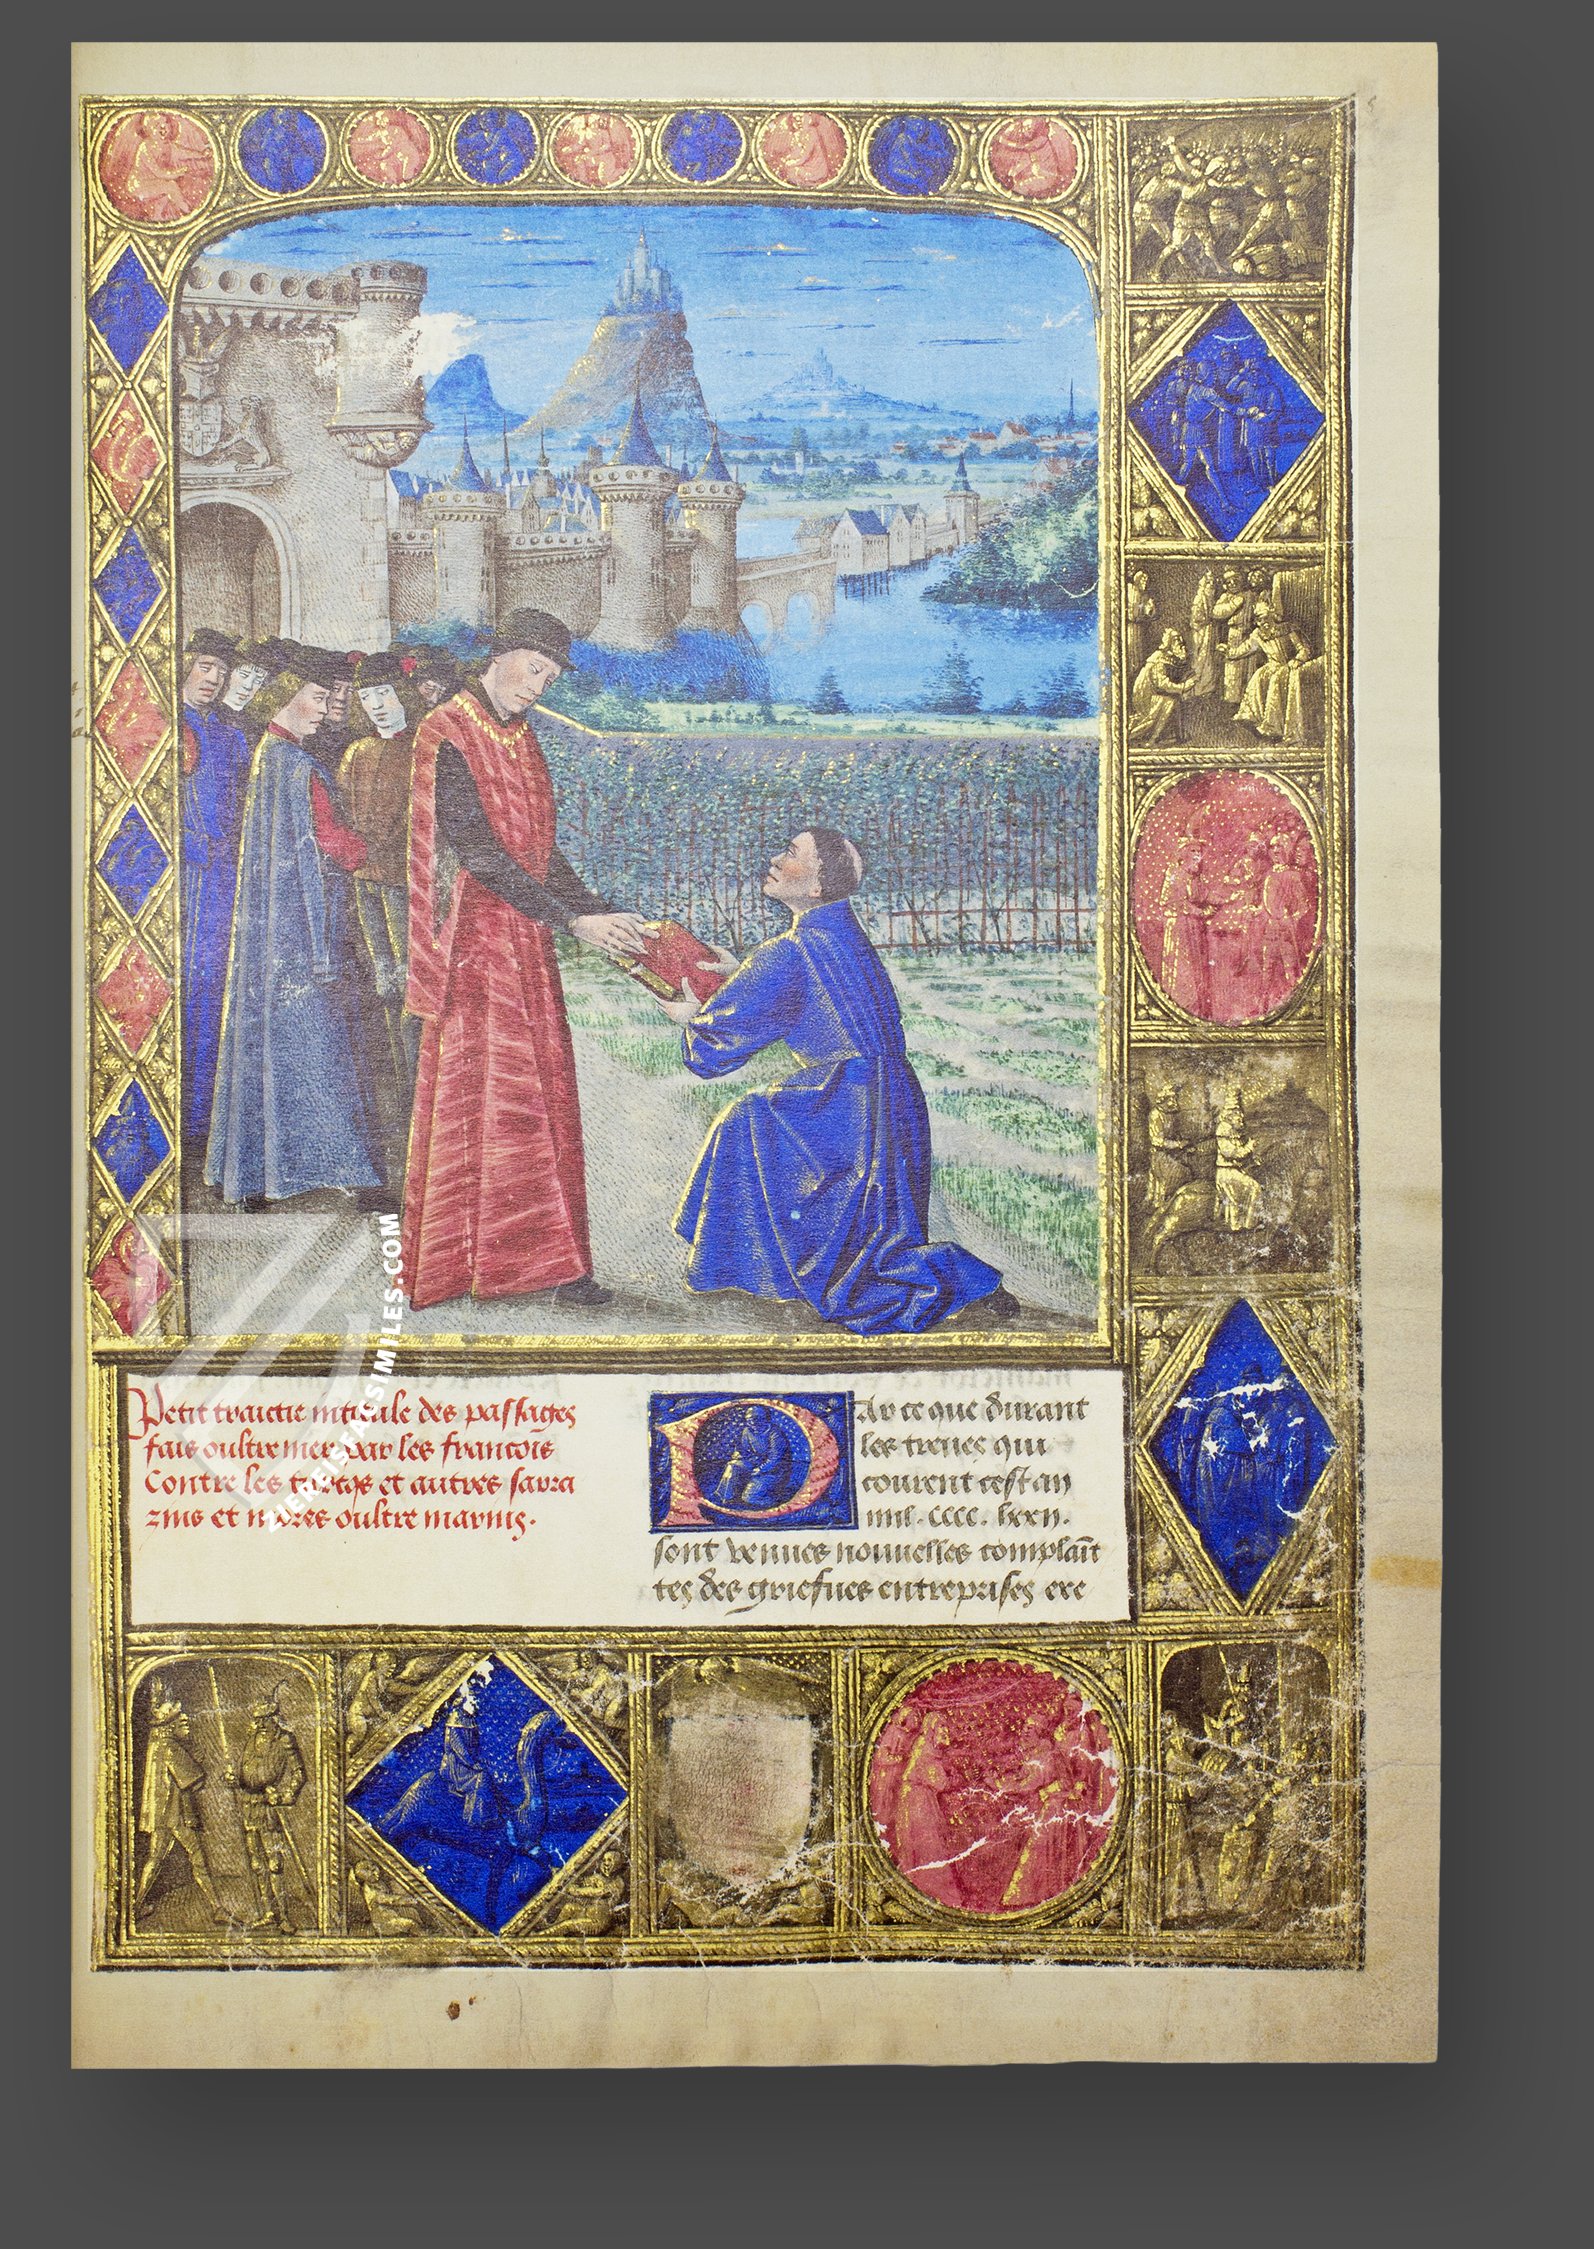 Petit traictie intitule des passages
fais oultre mer par les francois
Contre les turcqs et autres sarra
zins et mores oultre marins.
Par ce que durant
les treues qui
courent cest an
mil. cccc. lxxii.
sont venues nouuelles complaī
tes des griefues entreprises exe
ZIEREIS-FACSIMILES.COM